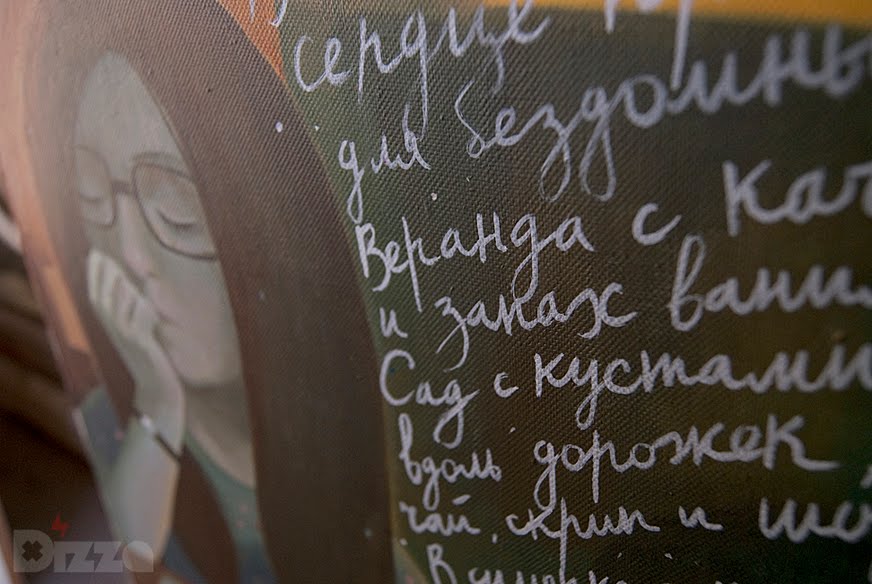 сердце
для бездомны
Веранда с кач
и запах вани
Сад с кустами
вдоль дорожек,
чай, скрип и
by Dizza